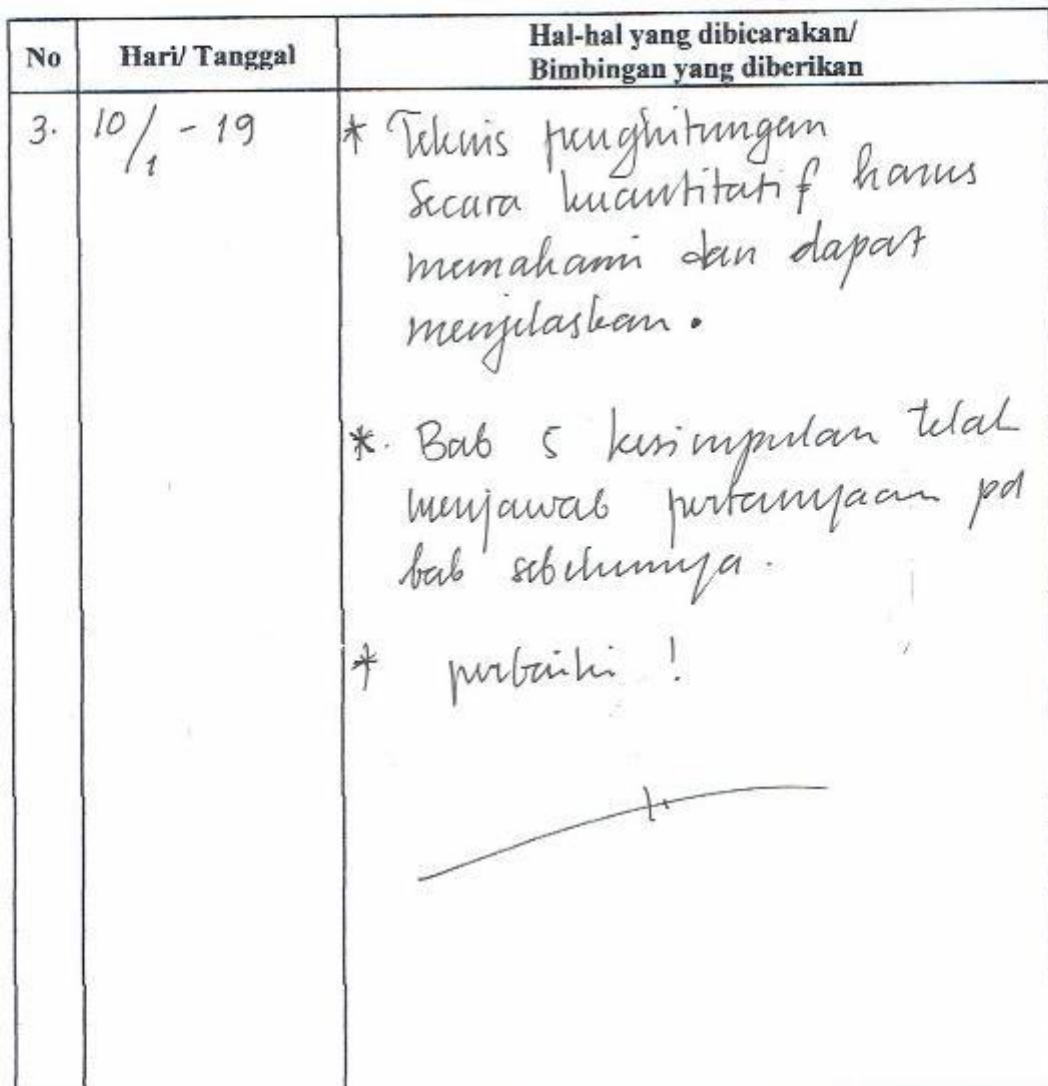 No Hari/ Tanggal Hal-hal yang dibicarakan/
Bimbingan yang diberikan
3. 10/1 - 19 * Teknis penghitungan
Secara kuantitatif harus
memahami dan dapat
menjelaskan.
*. Bab 5 kesimpulan telah
menjawab pertanyaan pd
bab sebelumnya.
* perbaiki !